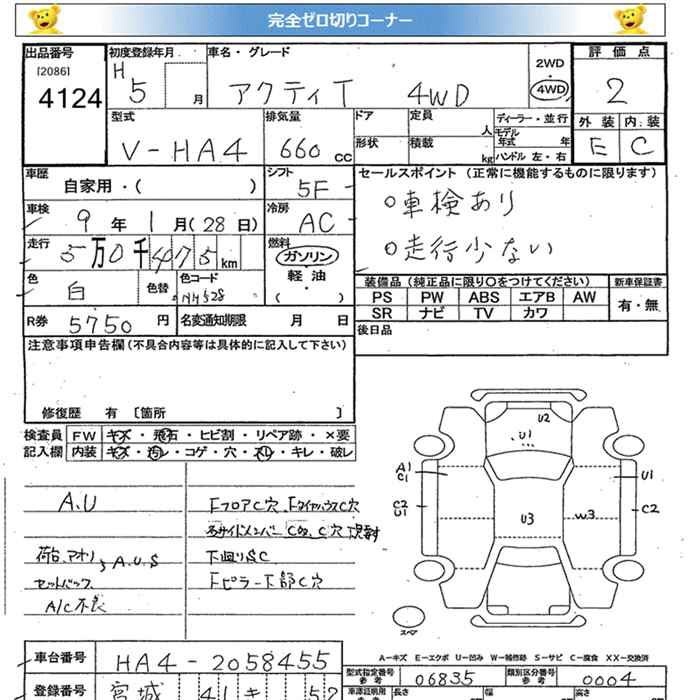 完全ゼロ切りコーナー
出品番号 初度登録年月 車名・グレード 評価点
[2086] H 5 月 アクティT 4WD 2WD・4WD 2
4124
型式 排気量 ドア 定員 ディーラー・並行 外装 内装
V-HA4 660 cc 形状 積載 人 kg モデル年式 年 ハンドル 左・右 E C
車歴 シフト セールスポイント (正常に機能するものに限ります)
自家用・( ) 5F
車検 9 年 1 月(28 日) 冷房 AC ○車検あり
走行 5万0千475 km 燃料 ガソリン・軽油・( ) ○走行少ない
色 白 色替 色コード NH528
装備品(純正品に限り○をつけてください) 新車保証書
PS PW ABS エアB AW 有・無
SR ナビ TV カワ
R券 5750 円 名変通知期限 月 日 後日品
注意事項申告欄(不具合内容等は具体的に記入して下さい)
修復歴 有 〔箇所 〕
検査員 FW キズ・飛石・ヒビ割・リペア跡・×要
記入欄 内装 キズ・汚レ・コゲ・穴・スレ・キレ・破レ
A.U
荷台、アオリ A.U.S
セットバック
A/C不良
FフロアC穴、FタイヤハウスC穴
下廻りSC
Fピラー下部C穴
U2
U1
A1 C1
U1
C2 U1
U3
W3
C2
スペア
A-キズ E-エクボ U-凹み W-補修跡 S-サビ C-腐食 XX-交換済
車台番号 HA4-2058455 型式指定番号 参考 06835 類別区分番号 参考 0004
登録番号 宮城 41 き 52 車庫証明用 参考 長さ 幅 高さ